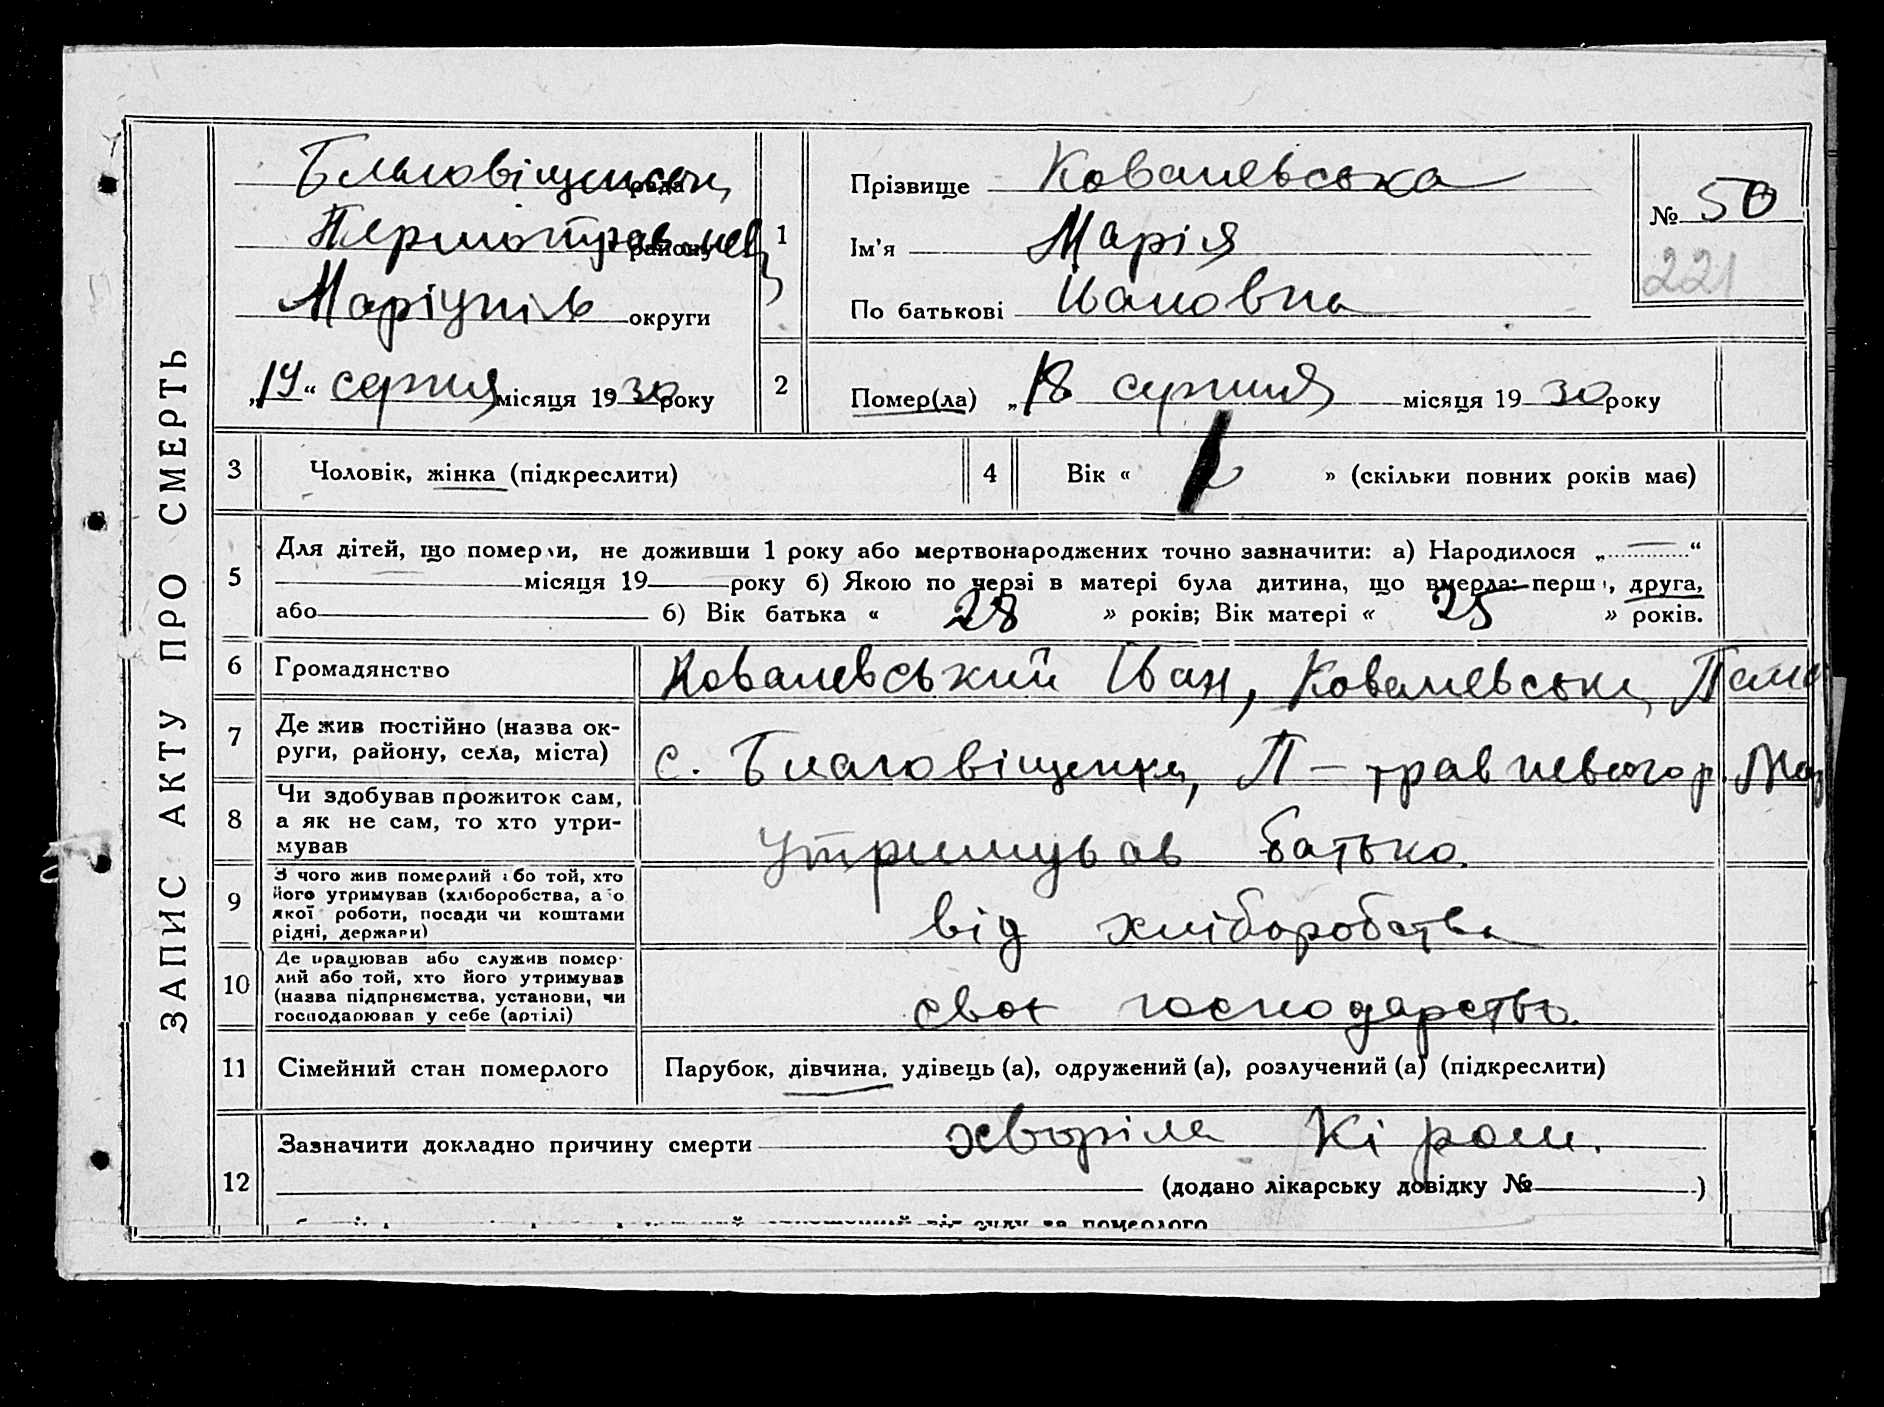 ЗАПИС АКТУ ПРО СМЕРТЬ
Благовіщенськ рада
Першотравнев району
Маріупіль округи
„19“ серпня місяця 1930 року
1
Прізвище Ковалевська
Ім'я Марія
По батькові Ивановна
№ 50
221
2
Помер(ла) „18 серпня місяця 1930 року
3 Чоловік, жінка (підкреслити)
4 Вік « » (скільки повних років має)
5
Для дітей, що померли, не доживши 1 року або мертвонароджених точно зазначити: а) Народилося „ “
місяця 19 року б) Якою по черзі в матері була дитина, що вмерла: перш , друга,
або б) Вік батька « 28 » років; Вік матері « 25 » років.
6 Громадянство Ковалевський Іван, Ковалевськ
7 Де жив постійно (назва ок-
руги, району, села, міста)
с. Благовіщенка, П-травневого р. Мар
8 Чи здобував прожиток сам,
а як не сам, то хто утри-
мував
утримував батько.
9 З чого жив померлий або той, хто
його утримував (хліборобства, або
якої роботи, посади чи коштами
рідні, держави)
від хліборобства
10 Де працював або служив помер-
лий або той, хто його утримував
(назва підприємства, установи, чи
господарював у себе (артілі)
своє господарство.
11 Сімейний стан померлого
Парубок, дівчина, удівець (а), одружений (а), розлучений (а) (підкреслити)
12
Зазначити докладно причину смерти хворіла Кіром.
(додано лікарську довідку № )
від суду за померлого